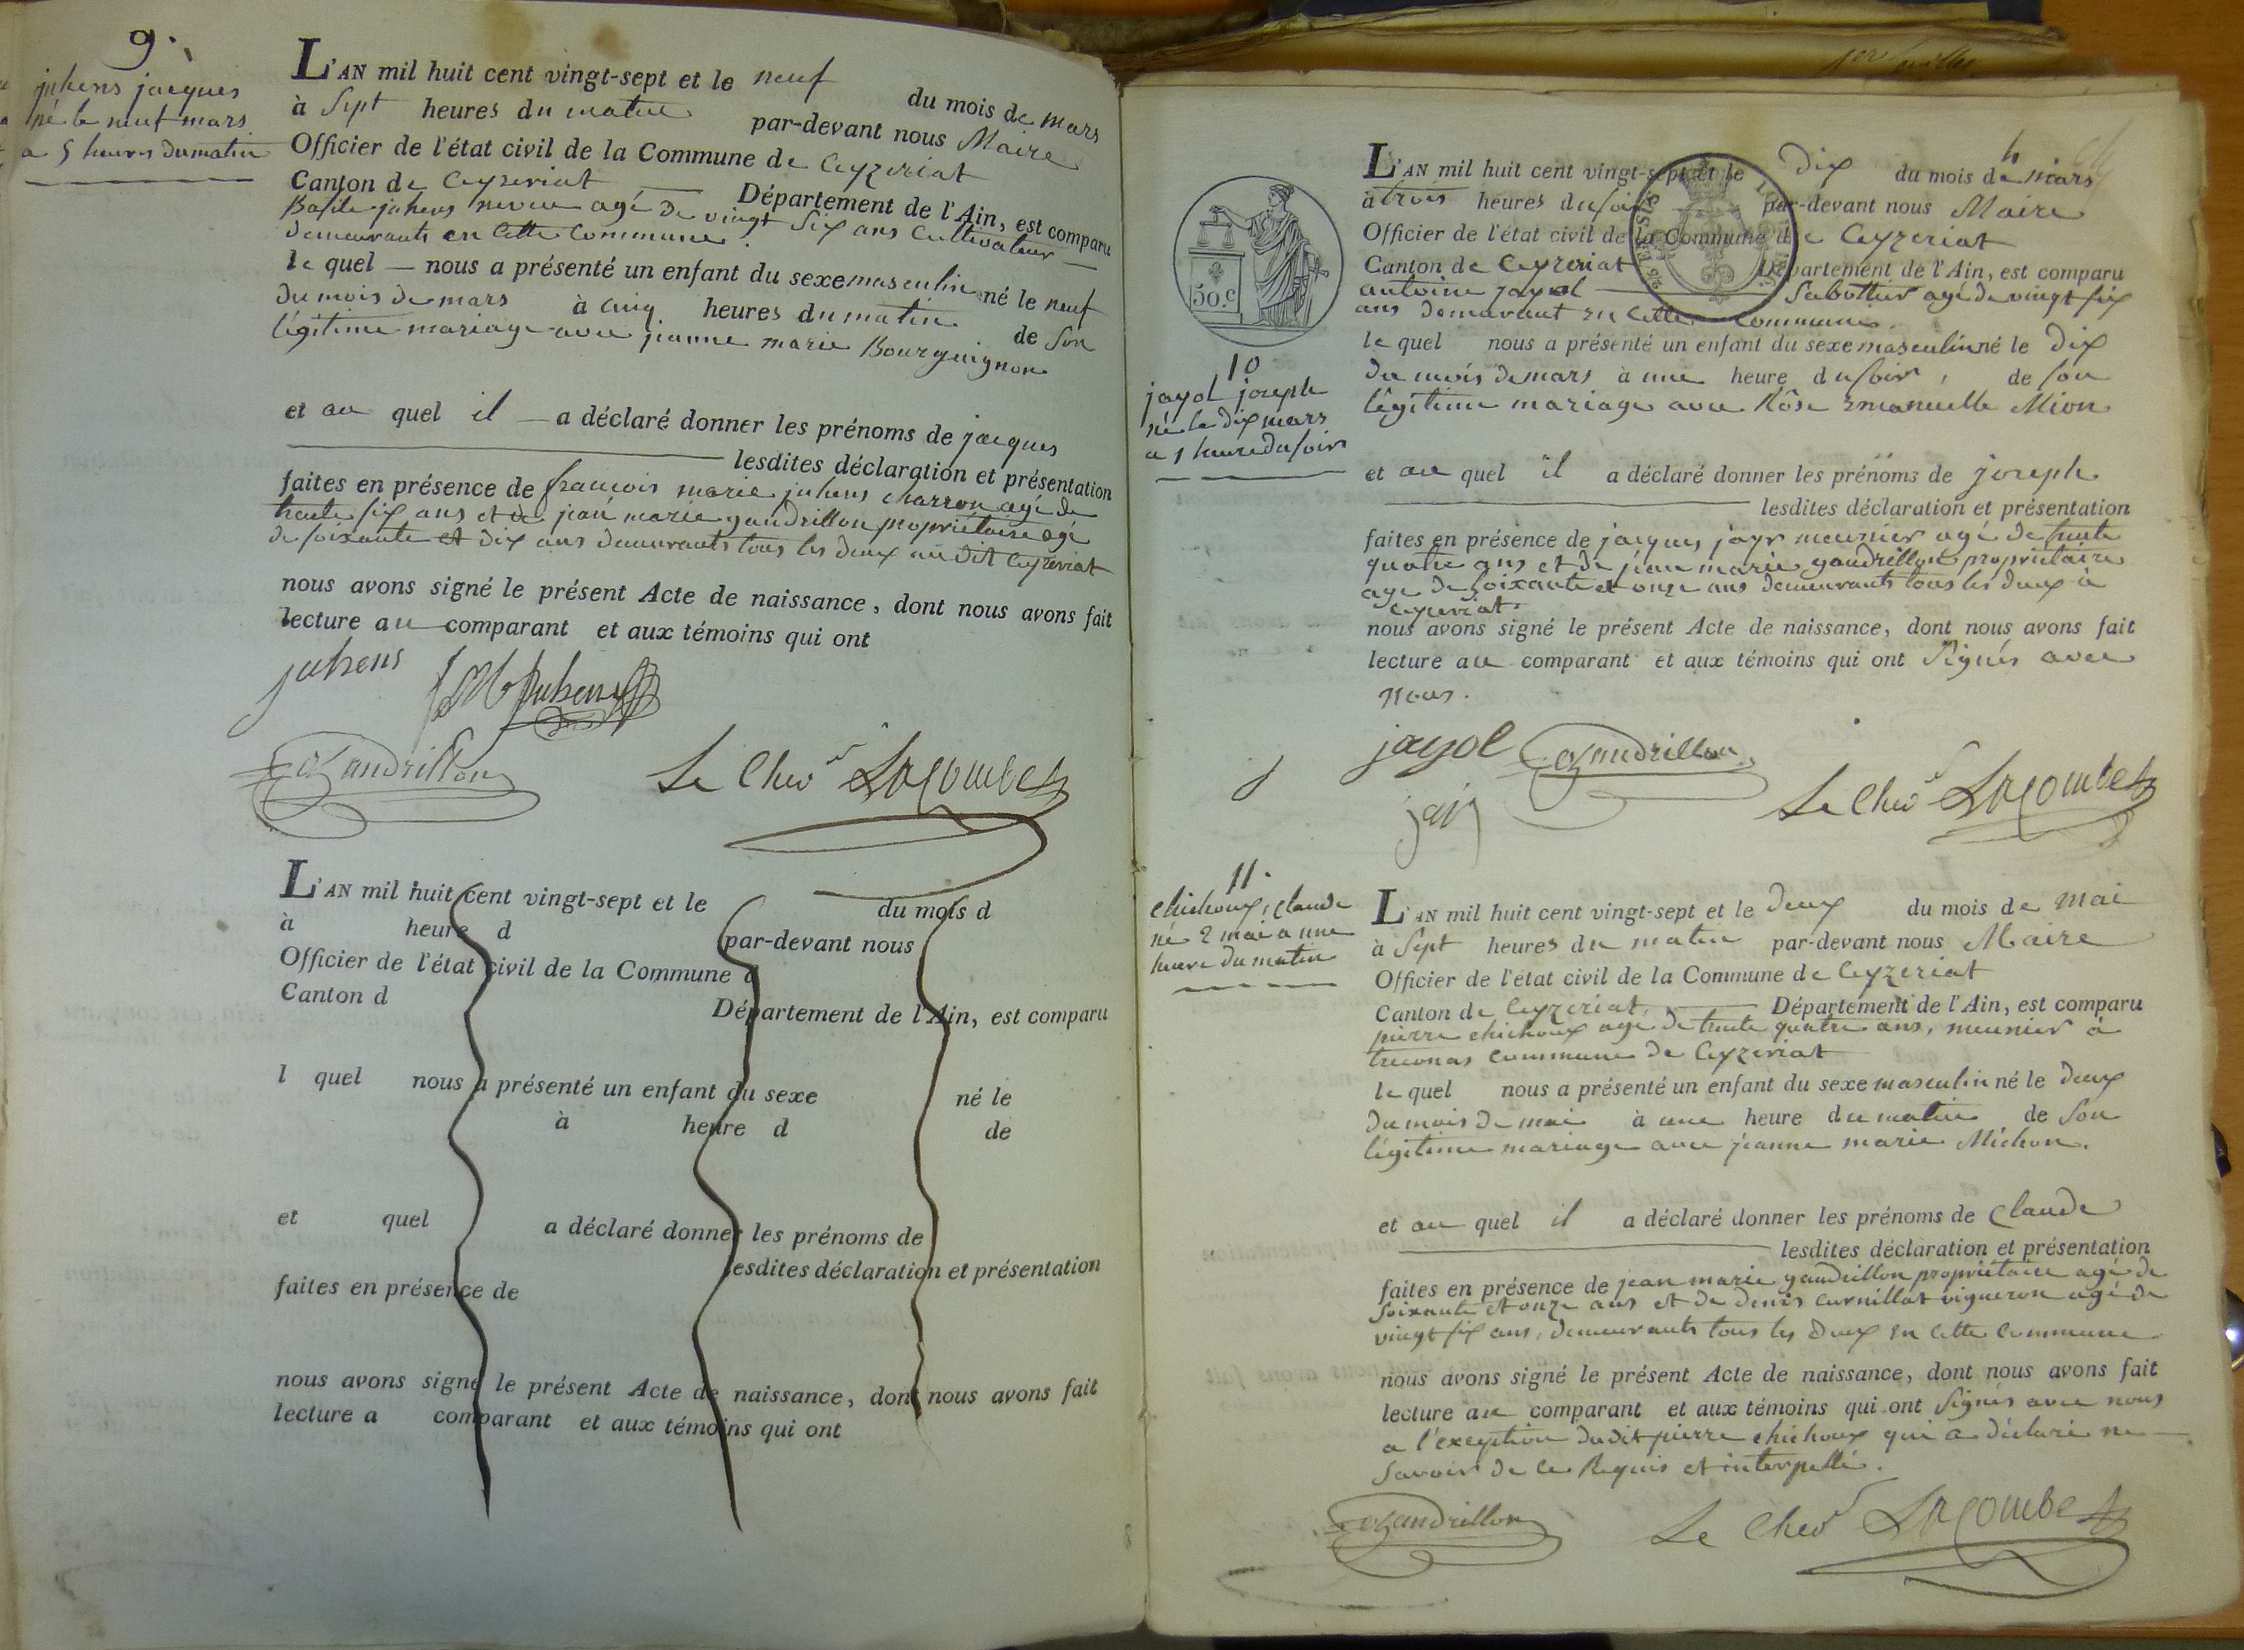 9.
juhens jacques
né le neuf mars
a 5 heures du matin
L'AN mil huit cent vingt-sept et le neuf du mois de mars
à Sept heures du matin par-devant nous Maire
Officier de l'état civil de la Commune de Ceyzeriat
Canton de Ceyzeriat Département de l'Ain, est comparu
Basile juhens agé de vingt Six ans Cultivateur
demeurants en Cette Commune.
le quel nous a présenté un enfant du sexe masculin né le neuf
du mois de mars à cinq heures du matin de Son
légitime mariage avec jeanne marie Bourguignon
et au quel il a déclaré donner les prénoms de jacques
lesdites déclaration et présentation
faites en présence de francois marie juhens charron agé de
trente six ans et de jean marie gandrillon propriétaire agé
de soixante et dix ans demeurants tous les deux au dit Ceyzeriat
nous avons signé le présent Acte de naissance, dont nous avons fait
lecture au comparant et aux témoins qui ont
juhens
juhens
Gandrillon
Le Chev Lacombe
L'AN mil huit cent vingt-sept et le du mois d
à heure d par-devant nous
Officier de l'état civil de la Commune d
Canton d Département de l'Ain, est comparu
l quel nous a présenté un enfant du sexe né le
à heure d de
et quel a déclaré donner les prénoms de
lesdites déclaration et présentation
faites en présence de
nous avons signé le présent Acte de naissance, dont nous avons fait
lecture a comparant et aux témoins qui ont
50.c
10
jayol joseph
né le dix mars
a 1 heure du soir
L'AN mil huit cent vingt-sept et le Dix du mois de mars
à trois heures du soir par-devant nous Maire
Officier de l'état civil de la Commune de Ceyzeriat
Canton de Ceyzeriat Département de l'Ain, est comparu
antoine jayol Sabottier agé de vingt six
ans demeurant en Cette Commune.
le quel nous a présenté un enfant du sexe masculin né le Dix
du mois de mars à une heure du soir, de son
légitime mariage avec Rôse Emanuelle Mion
et au quel il a déclaré donner les prénoms de joseph
lesdites déclaration et présentation
faites en présence de jacques jayr meunier agé de trente
quatre ans et de jean marie gandrillon propriétaire
agé de soixante et onze ans demeurants tous les deux a
Ceyzeriat
nous avons signé le présent Acte de naissance, dont nous avons fait
lecture au comparant et aux témoins qui ont Signés avec
nous.
jayol Gandrillon
jayr
Le Chev Lacombe
11.
Chichoux, claude
né 2 mai a une
heure du matin
L'AN mil huit cent vingt-sept et le deux du mois de mai
à Sept heures du matin par-devant nous Maire
Officier de l'état civil de la Commune de Ceyzeriat
Canton de Ceyzeriat, Département de l'Ain, est comparu
pierre chichoux agé de trente quatre ans, meunier à
treconas Commune de Ceyzeriat
le quel nous a présenté un enfant du sexe masculin né le deux
du mois de mai à une heure du matin de Son
légitime mariage avec jeanne marie Michon.
et au quel il a déclaré donner les prénoms de Claude
lesdites déclaration et présentation
faites en présence de jean marie gandrillon propriétaire agé de
Soixante et onze ans et de denis Curnillat vigneron agé de
vingt six ans, demeurants tous les deux en Cette Commune
nous avons signé le présent Acte de naissance, dont nous avons fait
lecture au comparant et aux témoins qui ont Signés avec nous
a l'exeption dudit pierre chichoux qui a déclaré ne
Savoir de ce Requis et interpellé.
Gandrillon
Le Chev Lacombe